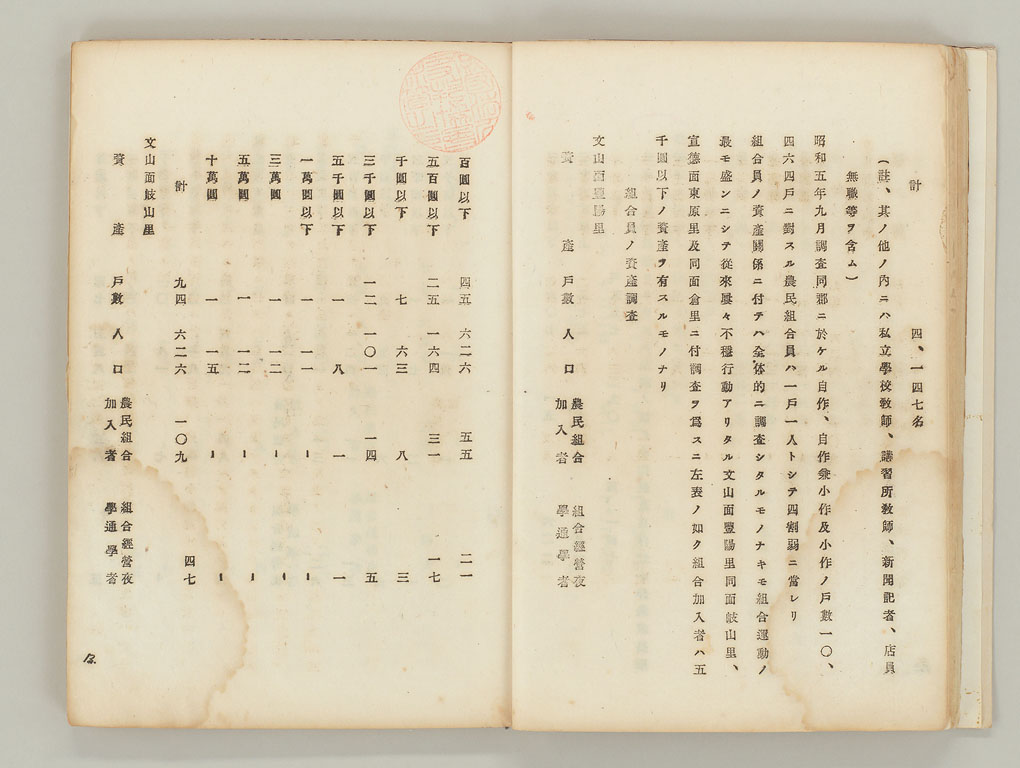 計　四、一四七名
(註、其ノ他ノ內ニハ私立學校敎師、講習所敎師、新聞記者、店員
無職等ヲ含ム)
昭和五年九月調査同郡ニ於ケル自作、自作兼小作及小作ノ戶數一〇、
四六四戶ニ對スル農民組合員ハ一戶一人トシテ四割弱ニ當レリ
組合員ノ資產關係ニ付テハ全体的ニ調査シタルモノナキモ組合運動ノ
最モ盛ンニシテ從來屢々不穩行動アリタル文山面豐陽里同面岐山里、
宣德面東原里及同面倉里ニ付調査ヲ爲スニ左表ノ如ク組合加入者ハ五
千圓以下ノ資產ヲ有スルモノナリ
組合員ノ資產調査
文山面豐陽里
資產　戶數　人口　農民組合加入者　組合經營夜學通學者
百圓以下　四五　六二六　五五　二一
五百圓以下　二五　一六四　三一　一七
千圓以下　七　六三　八　三
三千圓以下　一二　一〇一　一四　五
五千圓以下　一　八　一　一
一萬圓以下　一　一一　ー　ー
三萬圓　一　一二　ー　ー
五萬圓　一　一二　ー　ー
十萬圓　一　一五　ー　ー
計　九四　六二六　一〇九　四七
文山面岐山里
資產　戶數　人口　農民組合加入者　組合經營夜學通學者
13.